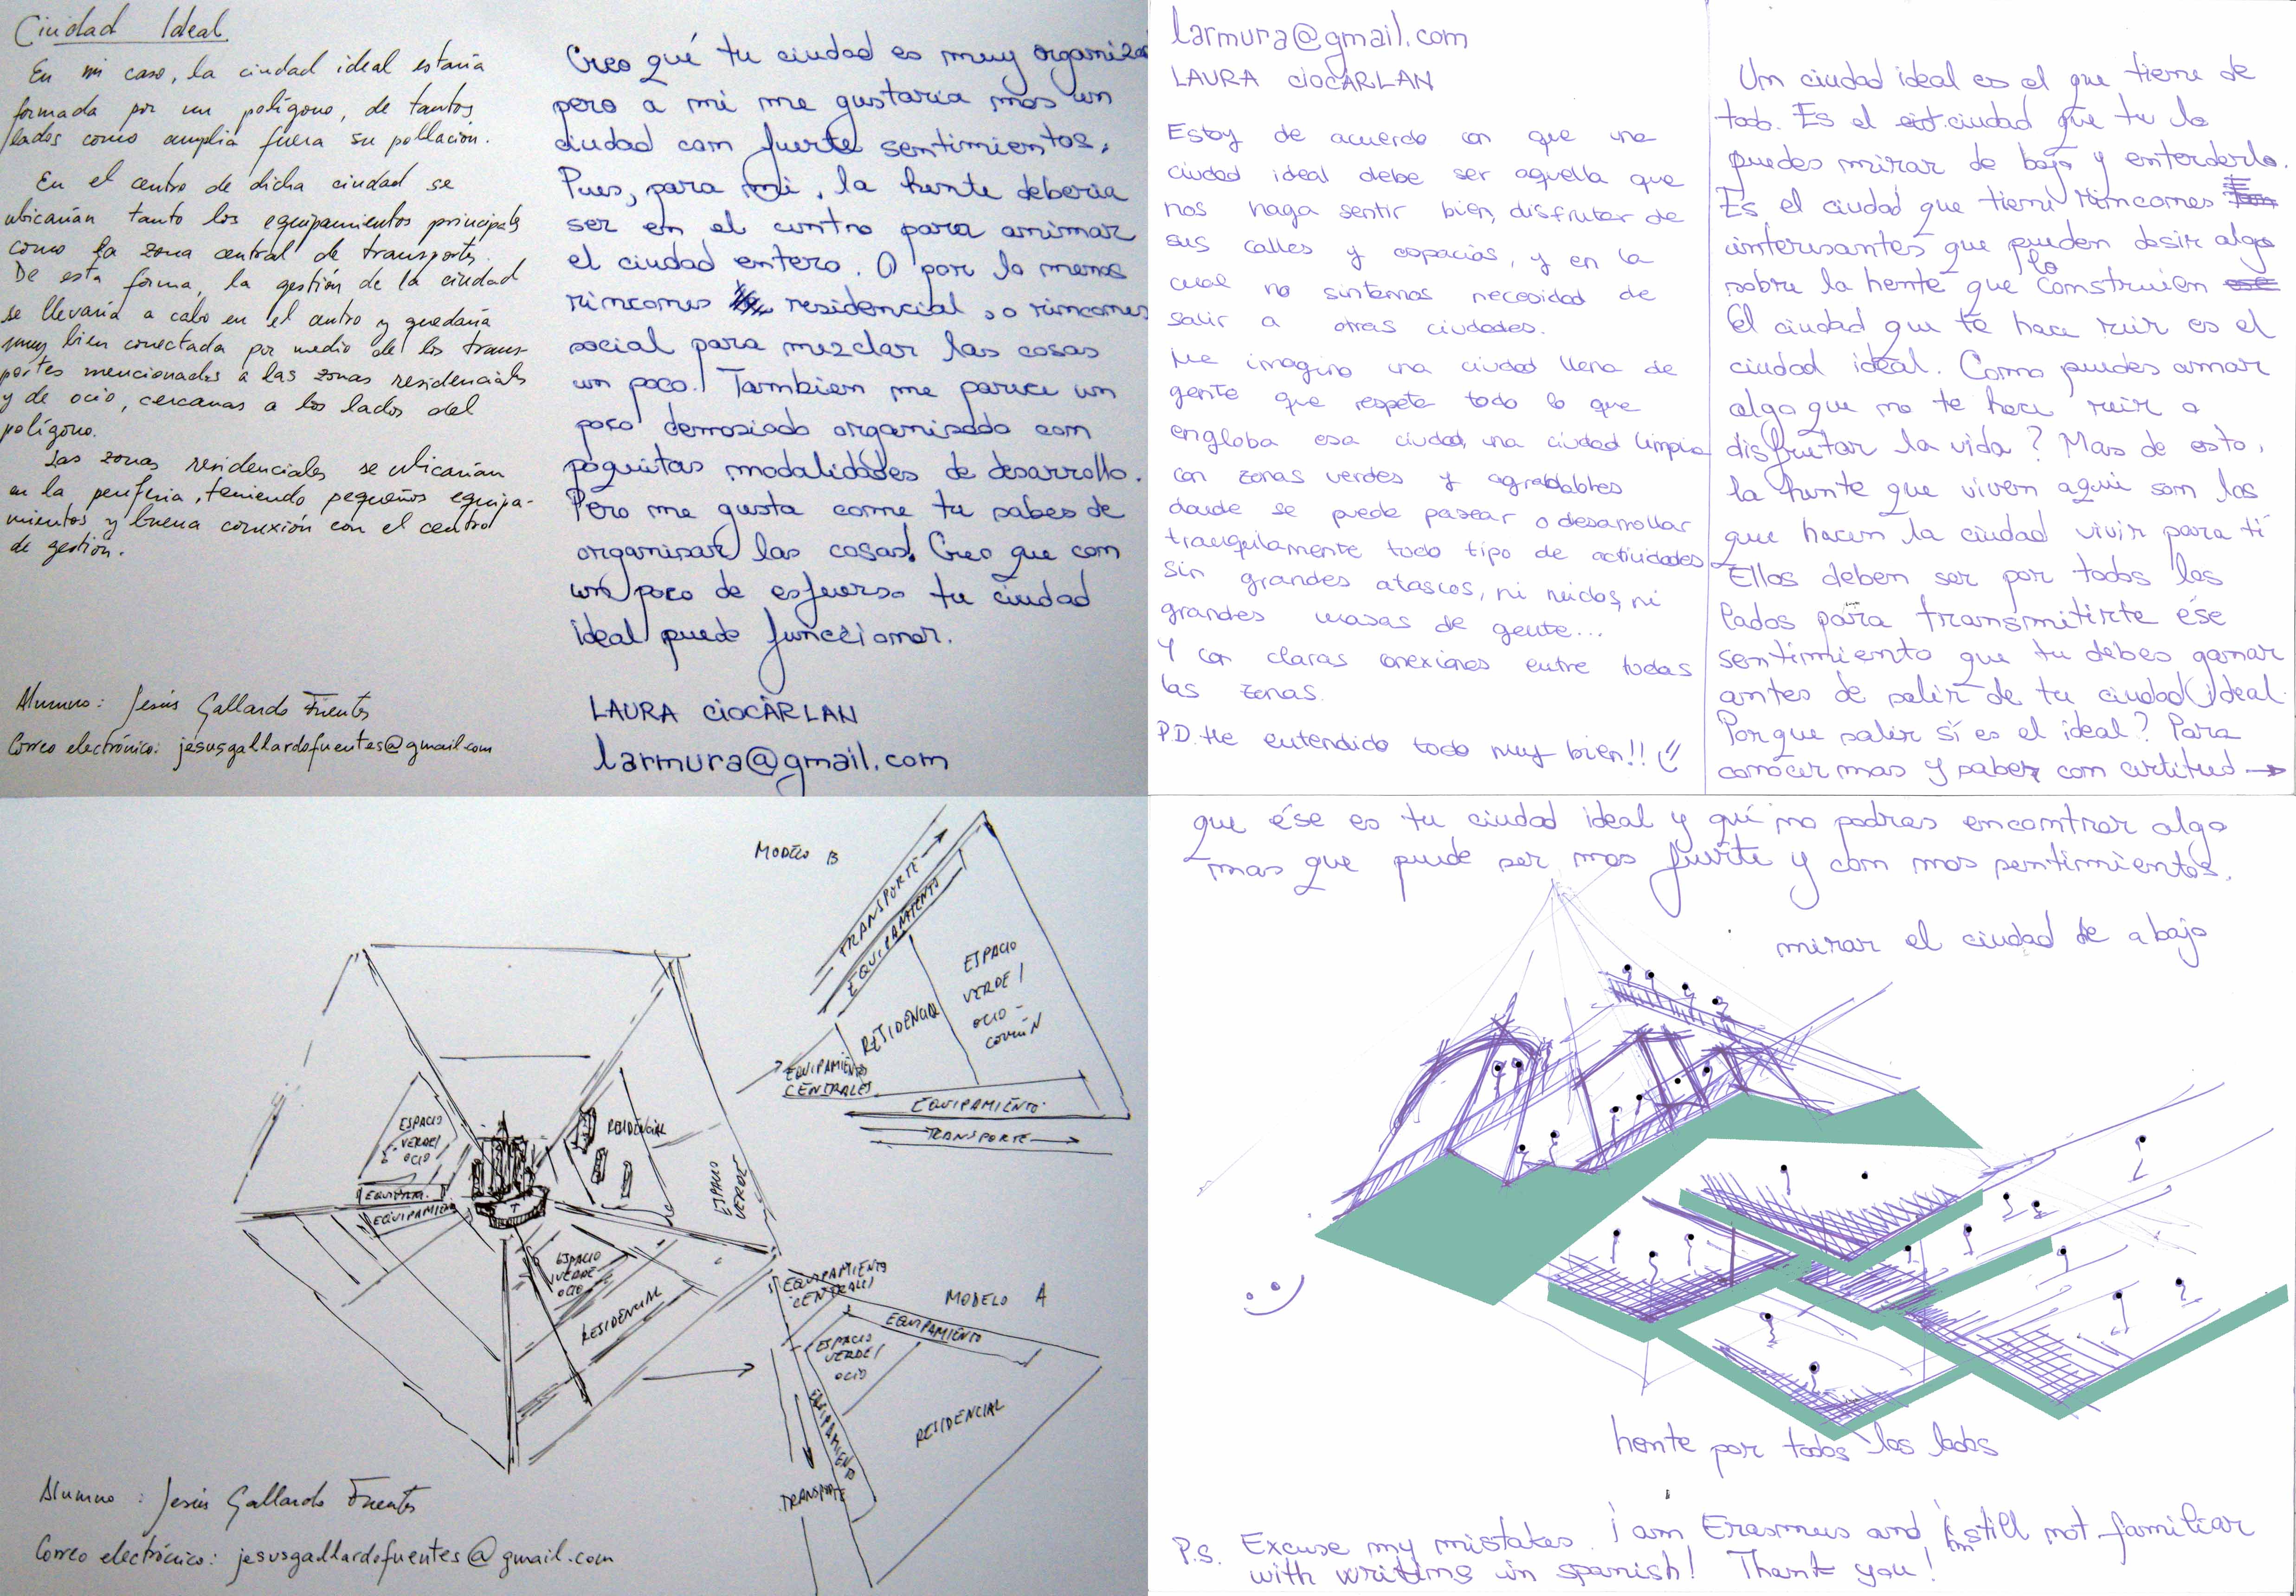 Ciudad Ideal
En mi caso, la ciudad ideal estaría
formada por un polígono, de tantos
lados como amplia fuera su pollación.
En el centro de dicha ciudad se
ubicarían tanto los equipamientos principales
como la zona central de transportes.
De esta forma, la gestión de la ciudad
se llevaría a cabo en el centro y quedaría
muy bien conectada por medio de los trans-
portes mencionados a las zonas residenciales
y de ocio, cercanas a los lados del
polígono.
Las zonas residenciales se ubicarían
en la periferia, teniendo pequeños equipa-
mientos y buena conexión con el centro
de gestión.
Alumno: Jesús Gallardo Fuentes
Correo electrónico: jesusgallardofuentes@gmail.com
Creo qué tu ciudad es muy organizada
pero a mi me gustaria mas un
ciudad com fuerte sentimientos.
Pues, para mi, la hente deberia
ser en el centro para animar
el ciudad entero. O por lo menos
rincones residencial, o rincones
social para mezclar las cosas
un poco. Tambien me parece un
poco demasiado organisado com
poquitas modalidades de desarrollo.
Pero me gusta come tu sabes de
organisar las cosas! Creo que com
un poco de esfuerso tu ciudad
ideal puede funccionar.
LAURA CIOCÂRLAN
larmura@gmail.com
larmura@gmail.com
LAURA CIOCÂRLAN
Estoy de acuerdo con que una
ciudad ideal debe ser aquella que
nos haga sentir bien, disfrutar de
sus calles y espacios, y en la
cual no sintamos necesidad de
salir a otras ciudades.
Me imagino una ciudad llena de
gente que respete todo lo que
engloba esa ciudad, una ciudad limpia
con zonas verdes y agradables
donde se puede pasear o desarrollar
tranquilamente todo tipo de actividades
sin grandes atascos, ni ruidos, ni
grandes masas de gente...
Y con claras conexiones entre todas
las zonas.
P.D. He entendido todo muy bien!!
Un ciudad ideal es el que tiene de
todo. Es el ciudad que tu lo
puedes mirar de bajo y entenderlo.
Es el ciudad que tiene rincones
interesantes que pueden desir algo
sobre la hente que lo construien
El ciudad que te hace reir es el
ciudad ideal. Como puedes amar
algo que no te hace reir o
disfrutar la vida? Mas de esto,
la hente que viven aqui son los
que hacen la ciudad vivir para ti
Ellos deben ser por todos los
lados para transmitirte ése
sentimiento que tu debes ganar
antes de salir de tu ciudad ideal.
Porque salir sí es el ideal? Para
conocer mas y saber con certitud →
MODELO B
TRANSPORTE
EQUIPAMIENTO
ESPACIO
VERDE /
OCIO -
COMÚN
RESIDENCIAL
EQUIPAMIENTOS
CENTRALES
EQUIPAMIENTO
TRANSPORTE
ESPACIO
VERDE/
OCIO
RESIDENCIAL
ESPACIO
VERDE
EQUIPAM.
EQUIPAMIENTO
ESPACIO
VERDE
OCIO
RESIDENCIAL
EQUIPAMIENTO
CENTRALES
MODELO A
EQUIPAMIENTO
ESPACIO
VERDE/
OCIO
EQUIPAMIENTO
RESIDENCIAL
TRANSPORTE
Alumno: Jesús Gallardo Fuentes
Correo electrónico: jesusgallardofuentes@gmail.com
que ése es tu ciudad ideal y qué no podras encontrar algo
mas que puede ser mas fuerte y com mas sentimientos.
mirar el ciudad de abajo
hente por todos los lados
P.S. Excuse my mistakes. I am Erasmus and I'm still not familiar
with writing in spanish! Thank you!